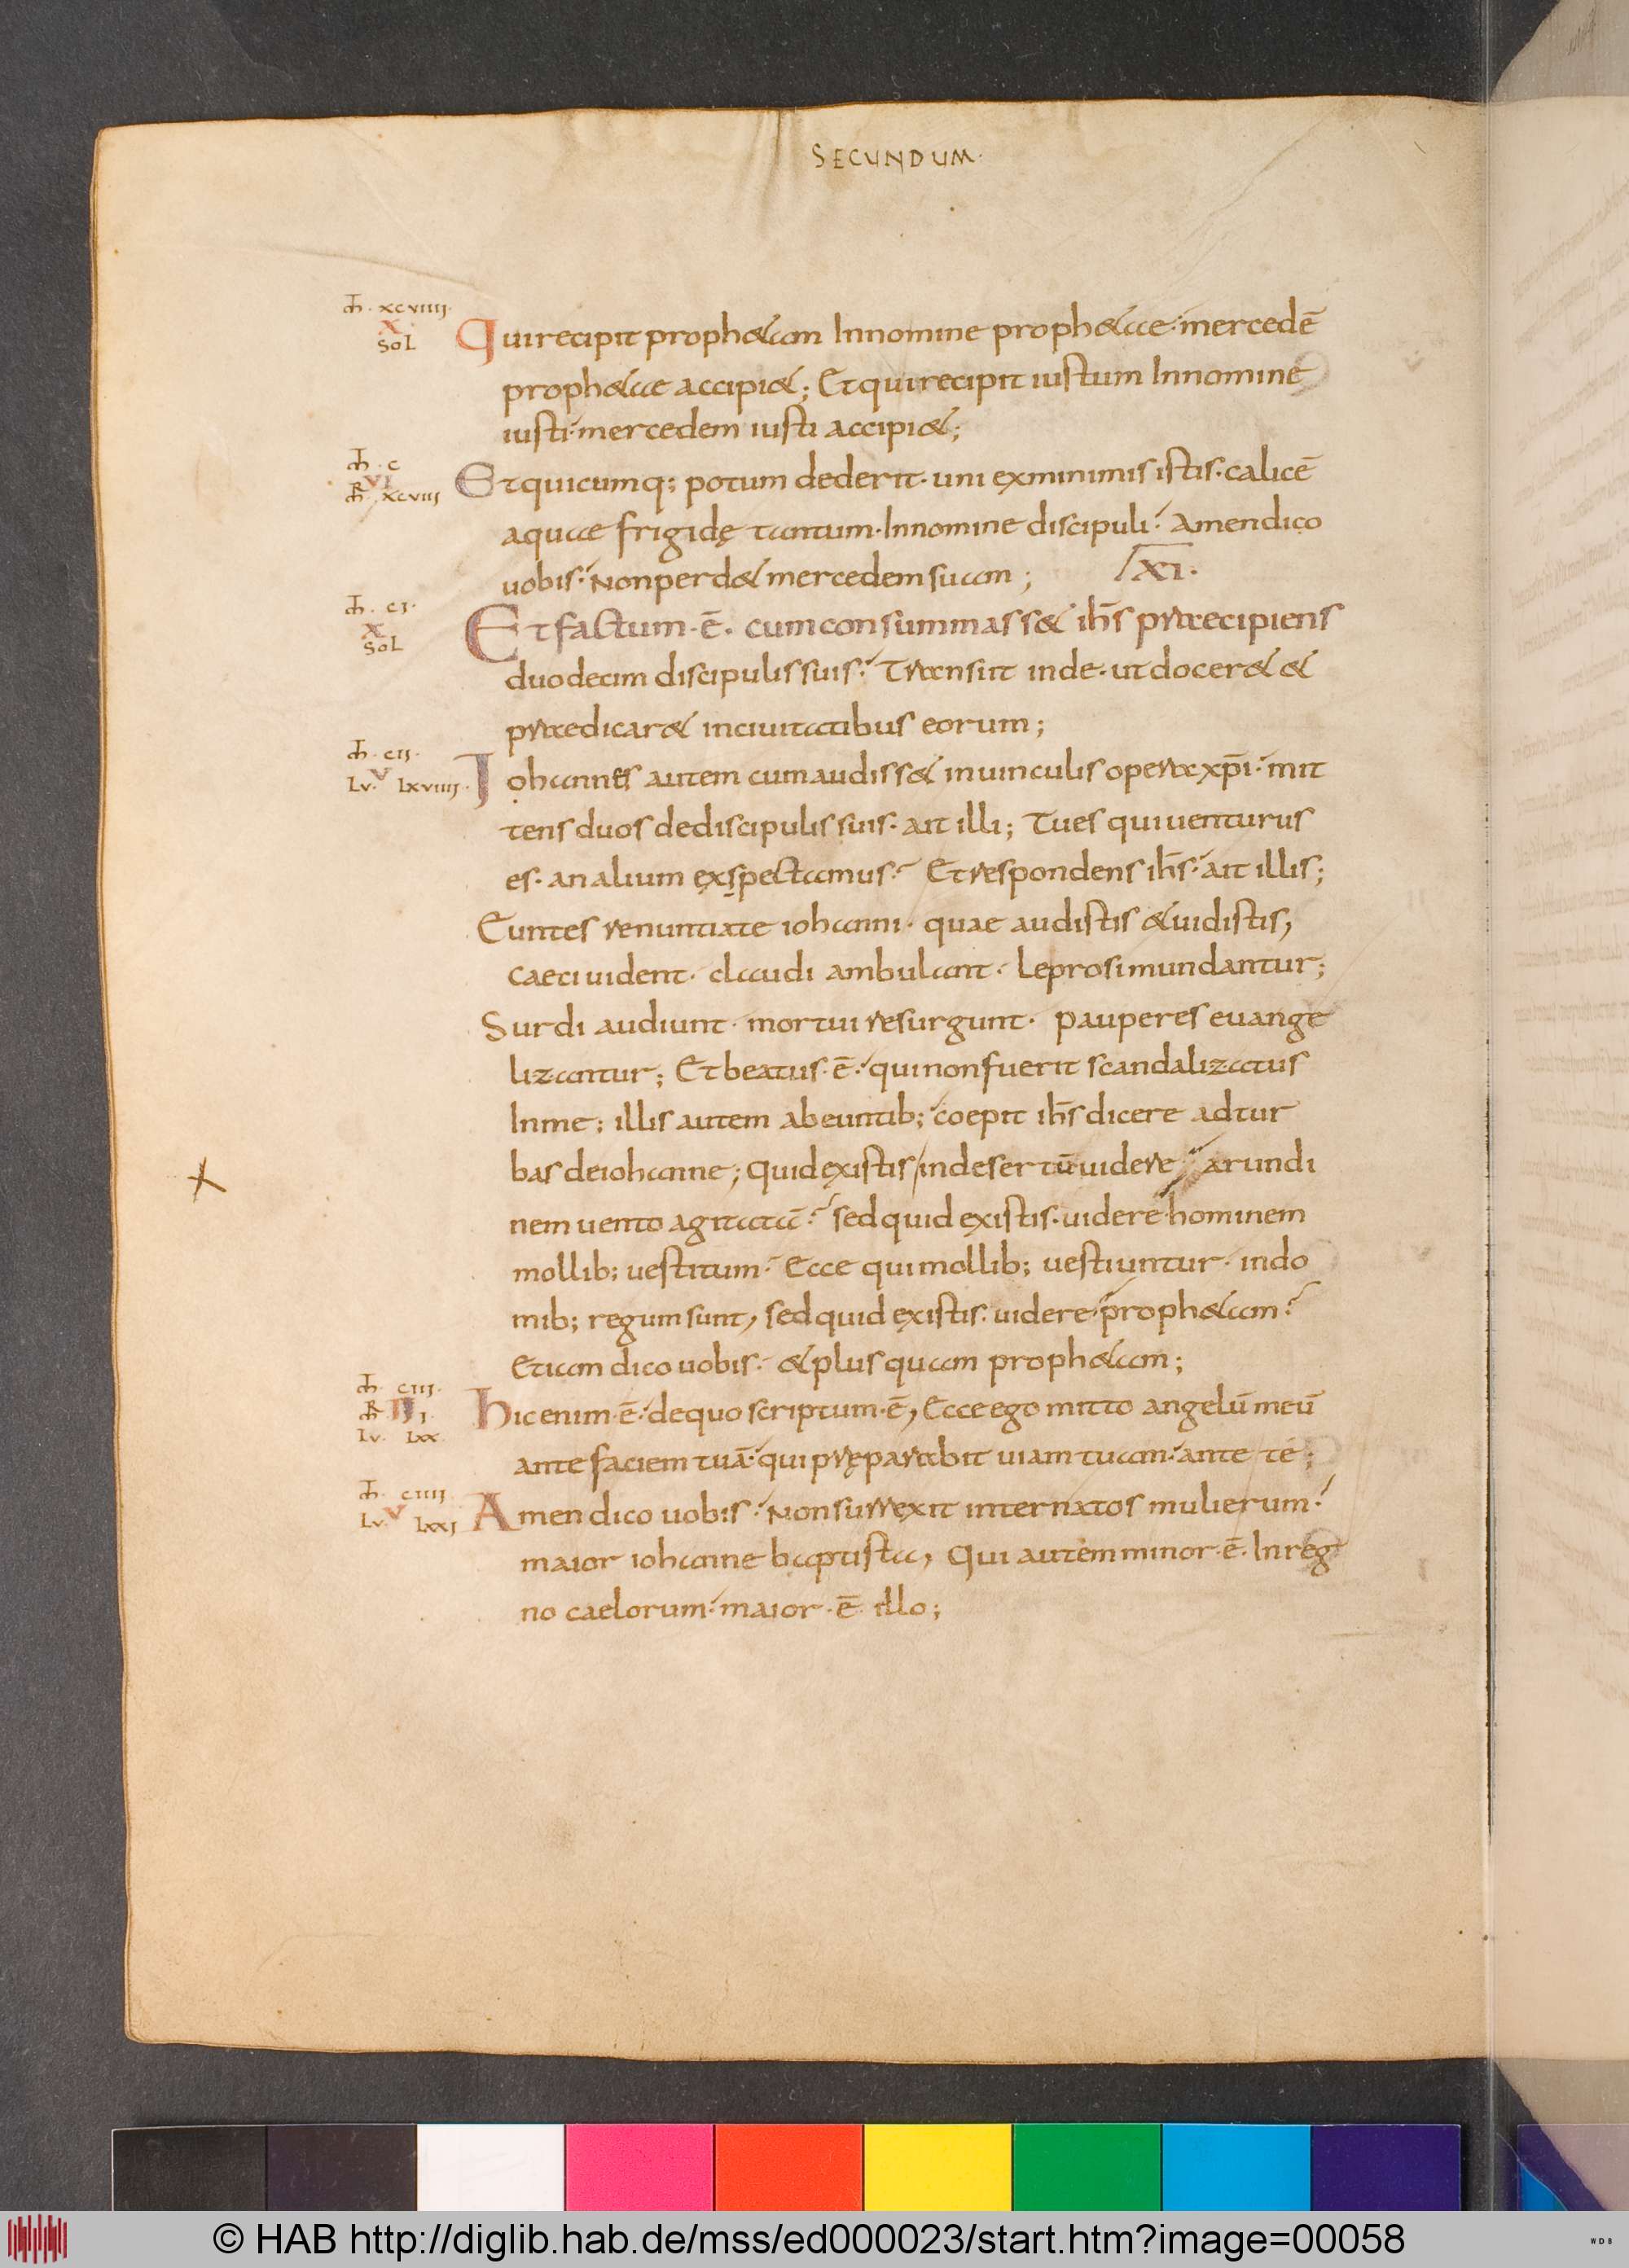 SECUNDUM·
Th· xcviiii·
x
Sol
Qui recipit proph&am In nomine proph&ae· mercedē
proph&ae accipi&; Et qui recipit iustum In nomine
iusti· mercedem iusti accipi&;
Th· c
vi
MR· xcviii
Et quicumq; potum dederit· uni ex minimis istis· calicē
aquae frigidę tantum· In nomine discipuli· Amen dico
uobis· Non perd& mercedem suam; XI·
Th· ci·
x
Sol
Et factum· ē· cum consummass& ih̄s praecipiens
duodecim discipulis suis· Transiit inde· ut docer& &
praedicar& in ciuitatibus eorum;
Th· cii·
v
Lv· Lxviiii·
Iohannes autem cum audiss& in uinculis opera xp̄i· mit
tens duos de discipulis suis· ait illi; Tu es qui uenturus
es· an alium exspectamus? Et respondens ih̄s· ait illis;
Euntes renuntiate iohanni· quae audistis & uidistis,
Caeci uident· claudi ambulant· Leprosi mundantur;
Surdi audiunt· mortui resurgunt· pauperes euange
lizantur; Et beatus· ē· qui non fuerit scandalizatus
In me; illis autem abeuntib; coepit ih̄s dicere ad tur
bas de iohanne; Quid existis in desertū uidere· arundi
nem uento agitatā? sed quid existis· uidere hominem
mollib; uestitum· Ecce qui mollib; uestiuntur· in do
mib; regum sunt, sed quid existis· uidere· proph&am?
Etiam dico uobis· & plus quam proph&am;
Th· ciii·
MR II I
Lv· Lxx·
Hic enim· ē· de quo scriptum· ē, Ecce ego mitto angelū meū
ante faciem tuā· qui pręparabit uiam tuam· ante te;
Th· ciiii
v
Lv· Lxxi
Amen dico uobis· Non surrexit inter natos mulierum·
maior iohanne baptista, Qui autem minor· ē· In reg
no caelorum· maior· ē· illo;
© HAB http://diglib.hab.de/mss/ed000023/start.htm?image=00058